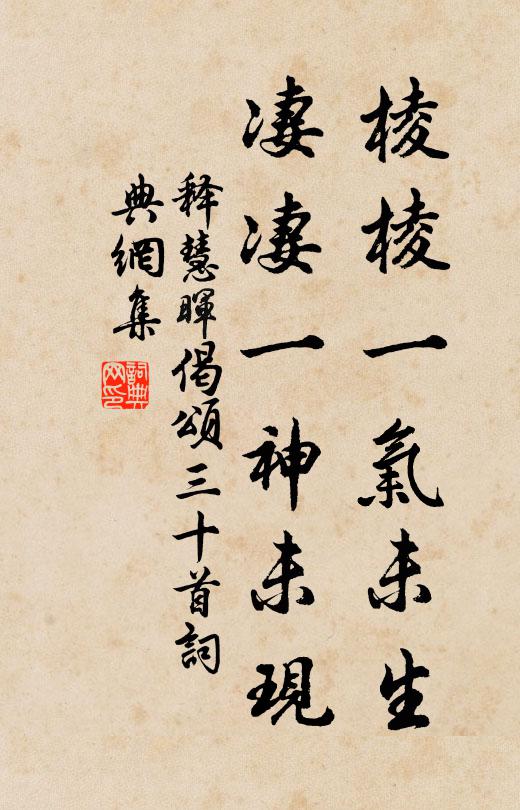 棱棱一氣未生
凄凄一神未現
释慧暉偈頌三十首詞
典網集
詞典
网印